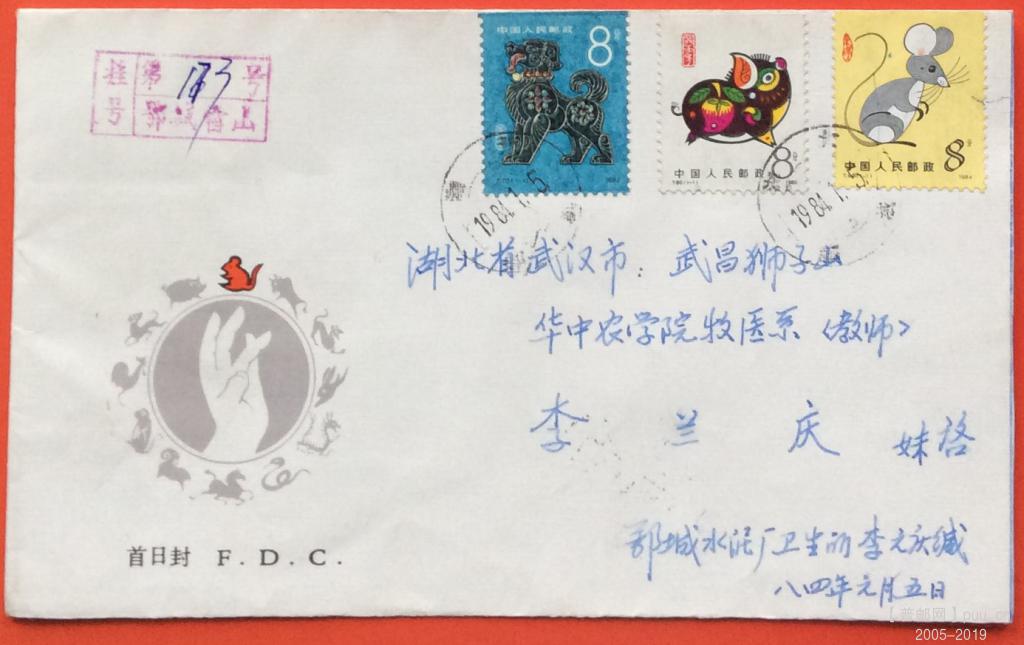 中国人民邮政
8分
T.70.(1-1) 1982
中国人民邮政
8分
T.80.(1-1) 1983
中国人民邮政
8分
1984
挂号
第173号
鄂 山
1984.1.5
1984.1.5
湖北省武汉市 武昌狮子山
华中农学院牧医系(教师)
李兰庆 妹启
鄂城水泥厂卫生所李元庆缄
八四年元月五日
首日封 F.D.C.
【普邮网】puu.cn
2005-2019